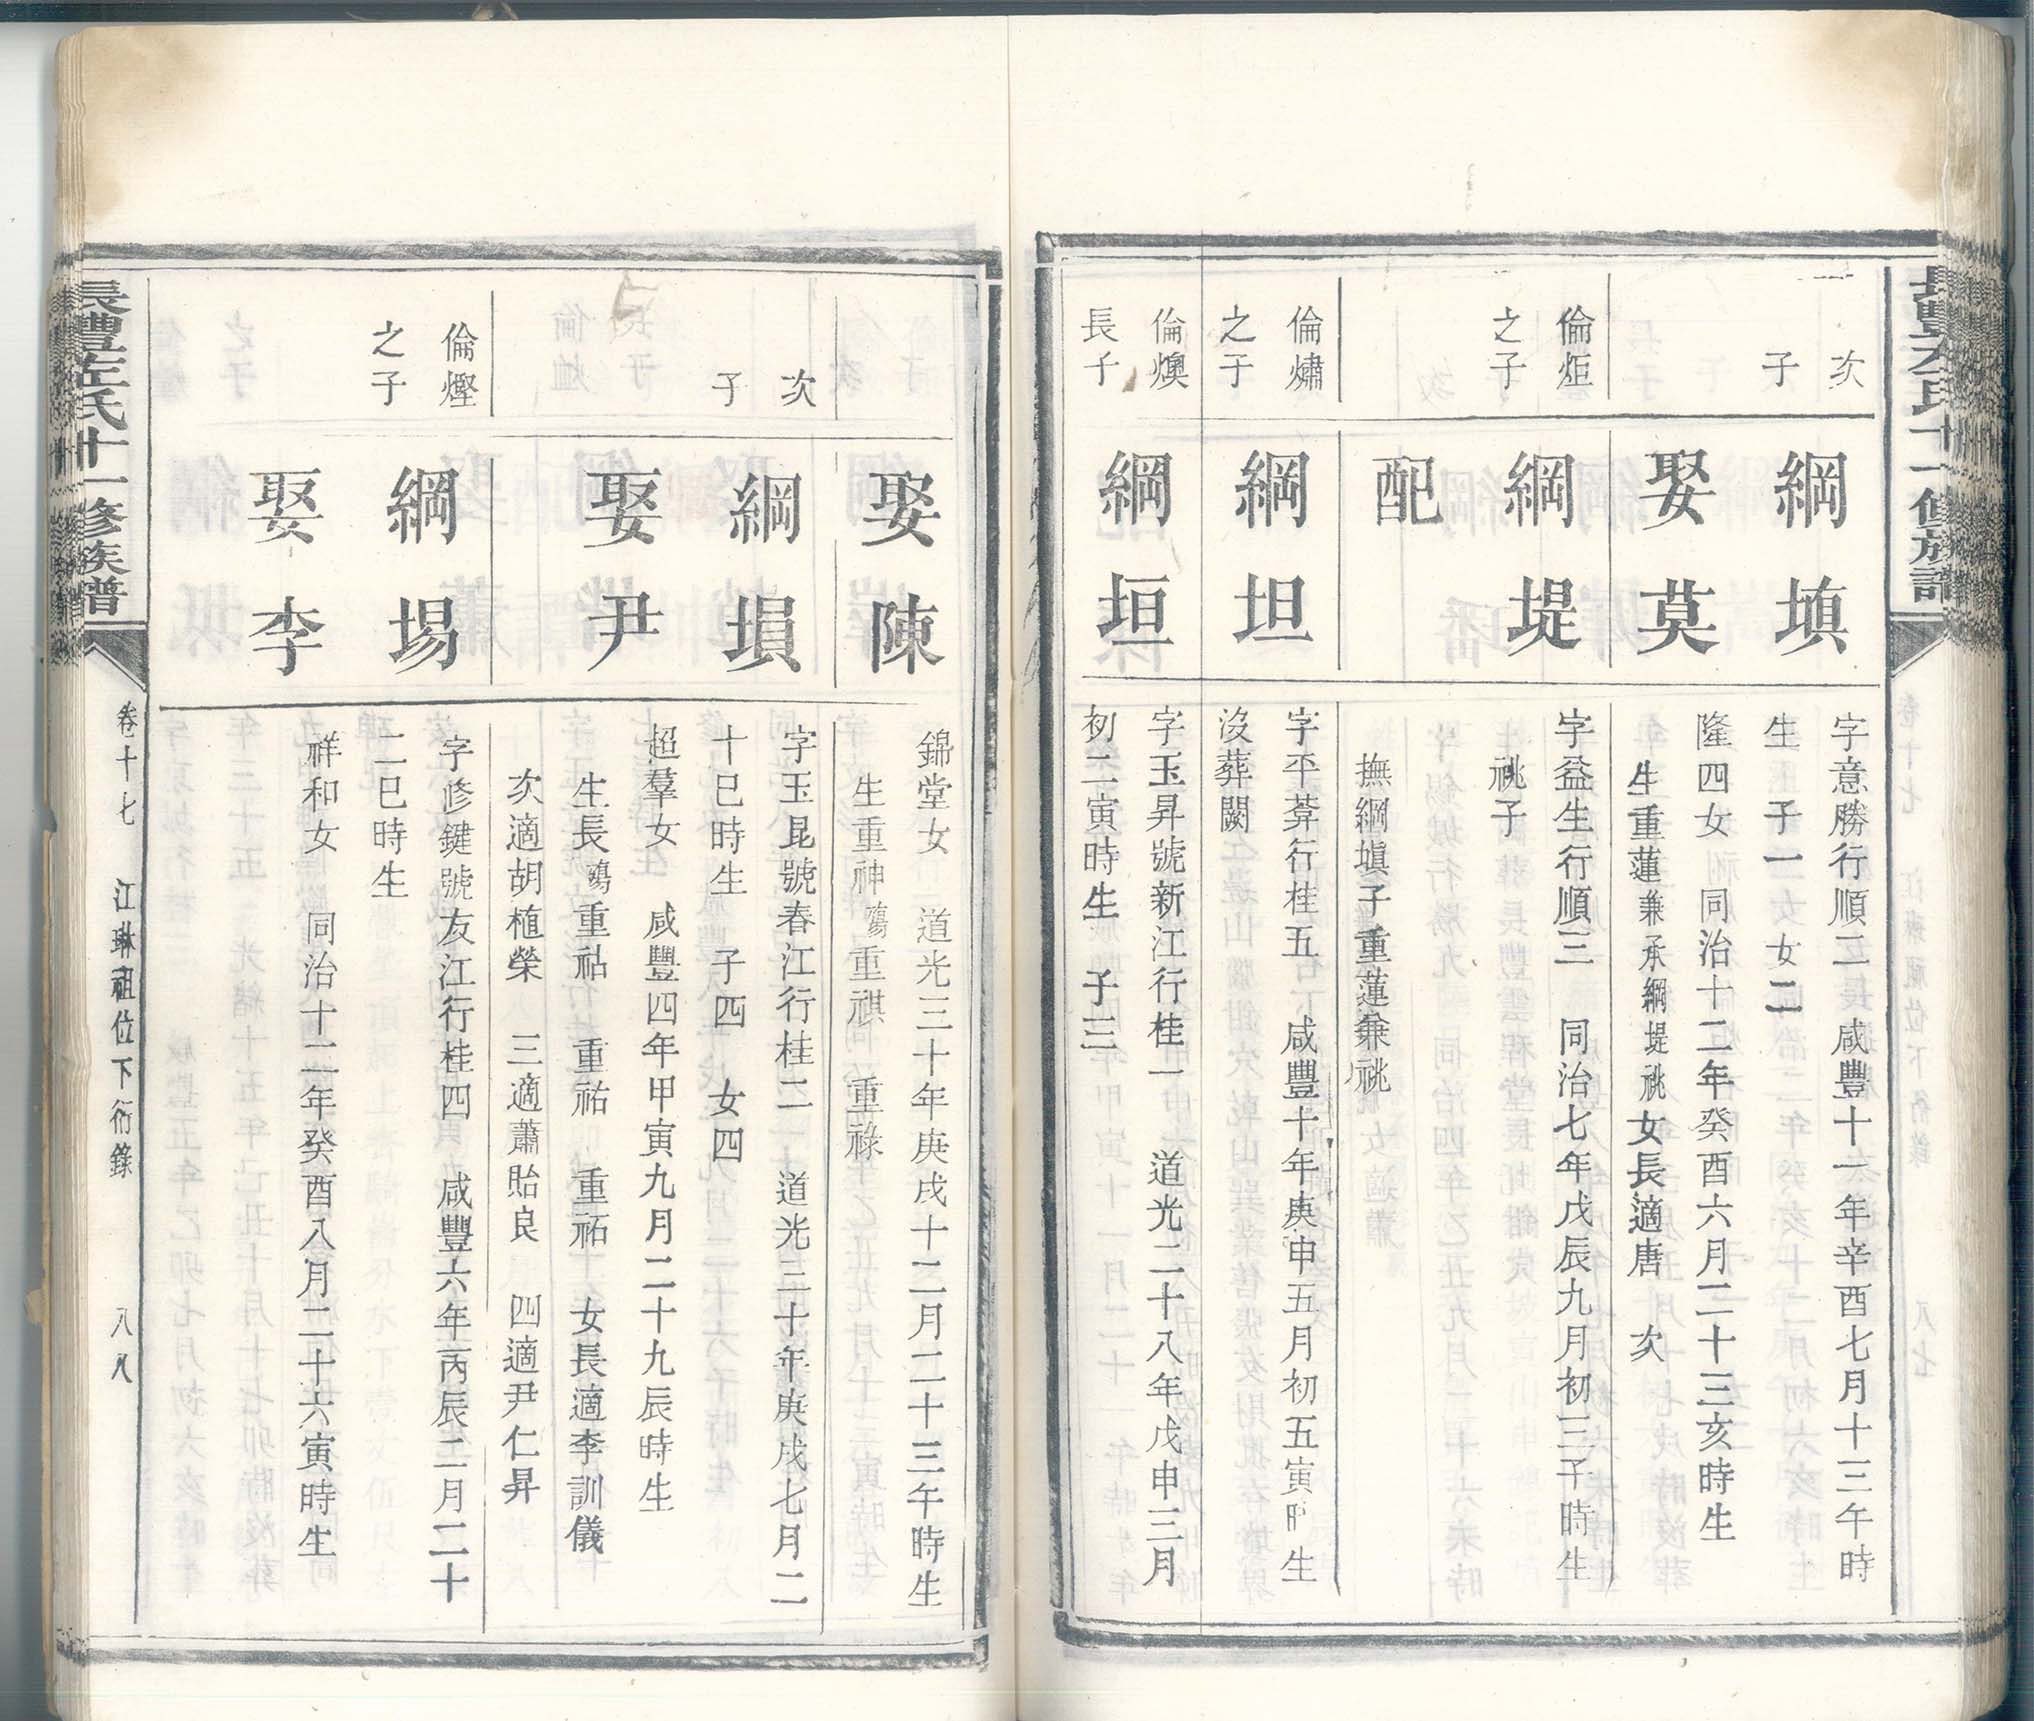 次
子
綱填
字意勝行順二 咸豐十一年辛酉七月十三午時
生 子一女二
娶莫
隆四女 同治十二年癸酉六月二十三亥時生
生重蓮兼承綱堤祧 女長適唐 次
倫炬
之子
綱堤
字益生行順三 同治七年戊辰九月初三子時生
祧子
配
撫綱塡子重蓮兼祧
倫爌
之子
綱坦
字平莽行桂五 咸豐十年庚申五月初五寅時生
沒葬闕
倫燠
長子
綱垣
字玉昇號新江行桂一 道光二十八年戊申三月
初二寅時生 子三
娶陳
錦堂女 道光三十年庚戌十二月二十三午時生
生重神殤 重祺 重祿
次
子
綱塤
字玉昆號春江行桂二 道光三十年庚戌七月二
十巳時生 子四 女四
娶尹
超羣女 咸豐四年甲寅九月二十九辰時生
生長殤 重祜 重祐 重祏 女長適李訓儀
次適胡植榮 三適蕭貽良 四適尹仁昇
倫熞
之子
綱埸
字修鍵號友江行桂四 咸豐六年丙辰二月二十
二巳時生
娶李
祥和女 同治十二年癸酉八月二十六寅時生
長灃左氏十一修族譜
卷十七 江琳祖位下衍錄 八八